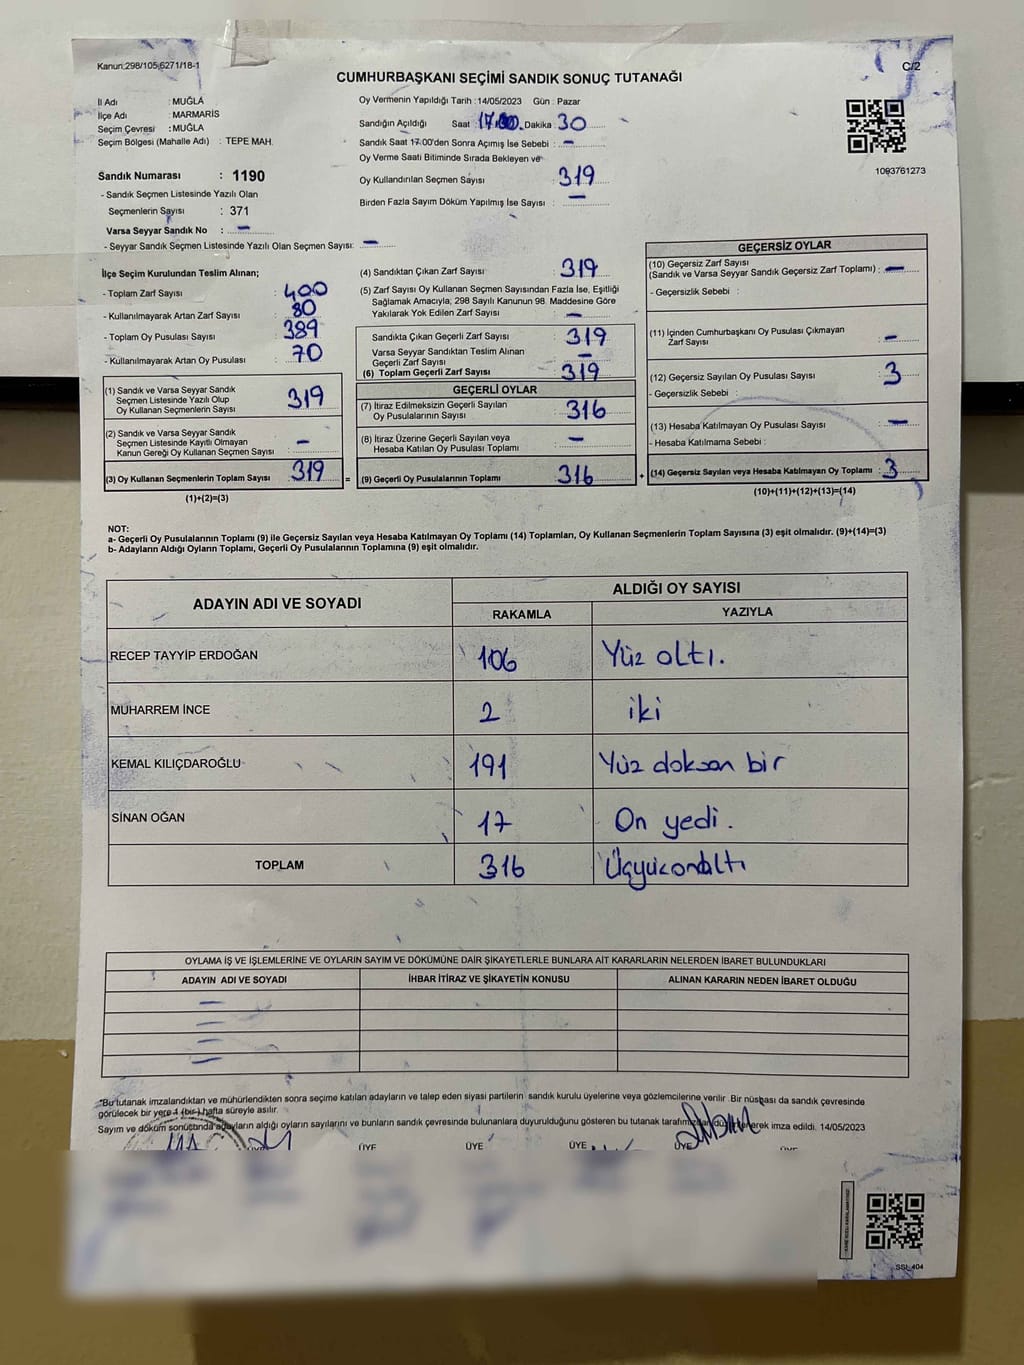 Kanun:298/105,6271/18-1
C/2
CUMHURBAŞKANI SEÇİMİ SANDIK SONUÇ TUTANAĞI
İl Adı : MUĞLA
İlçe Adı : MARMARİS
Seçim Çevresi : MUĞLA
Seçim Bölgesi (Mahalle Adı) : TEPE MAH.
Sandık Numarası : 1190
- Sandık Seçmen Listesinde Yazılı Olan
Seçmenlerin Sayısı : 371
Varsa Seyyar Sandık No : -
- Seyyar Sandık Seçmen Listesinde Yazılı Olan Seçmen Sayısı: -
Oy Vermenin Yapıldığı Tarih : 14/05/2023 Gün : Pazar
Sandığın Açıldığı Saat Dakika 30
Sandık Saat 17:00'den Sonra Açımış İse Sebebi : -
Oy Verme Saati Bitiminde Sırada Bekleyen ve
Oy Kullandırılan Seçmen Sayısı : 319
Birden Fazla Sayım Döküm Yapılmış İse Sayısı : -
1093761273
İlçe Seçim Kurulundan Teslim Alınan;
- Toplam Zarf Sayısı : 400
- Kullanılmayarak Artan Zarf Sayısı : 80
- Toplam Oy Pusulası Sayısı : 389
- Kullanılmayarak Artan Oy Pusulası : 70
(1) Sandık ve Varsa Seyyar Sandık
Seçmen Listesinde Yazılı Olup
Oy Kullanan Seçmenlerin Sayısı : 319
(2) Sandık ve Varsa Seyyar Sandık
Seçmen Listesinde Kayıtlı Olmayan
Kanun Gereği Oy Kullanan Seçmen Sayısı : -
(3) Oy Kullanan Seçmenlerin Toplam Sayısı : 319
(1)+(2)=(3)
=
(4) Sandıktan Çıkan Zarf Sayısı : 319
(5) Zarf Sayısı Oy Kullanan Seçmen Sayısından Fazla İse, Eşitliği
Sağlamak Amacıyla; 298 Sayılı Kanunun 98. Maddesine Göre
Yakılarak Yok Edilen Zarf Sayısı : -
Sandıkta Çıkan Geçerli Zarf Sayısı : 319
Varsa Seyyar Sandıktan Teslim Alınan
Geçerli Zarf Sayısı : -
(6) Toplam Geçerli Zarf Sayısı : 319
GEÇERLİ OYLAR
(7) İtiraz Edilmeksizin Geçerli Sayılan
Oy Pusulalarının Sayısı : 316
(8) İtiraz Üzerine Geçerli Sayılan veya
Hesaba Katılan Oy Pusulası Toplamı : -
(9) Geçerli Oy Pusulalarının Toplamı : 316
+
GEÇERSİZ OYLAR
(10) Geçersiz Zarf Sayısı
(Sandık ve Varsa Seyyar Sandık Geçersiz Zarf Toplamı) : -
- Geçersizlik Sebebi :
(11) İçinden Cumhurbaşkanı Oy Pusulası Çıkmayan
Zarf Sayısı : -
(12) Geçersiz Sayılan Oy Pusulası Sayısı : 3
- Geçersizlik Sebebi :
(13) Hesaba Katılmayan Oy Pusulası Sayısı : -
- Hesaba Katılmama Sebebi :
(14) Geçersiz Sayılan veya Hesaba Katılmayan Oy Toplamı : 3
(10)+(11)+(12)+(13)=(14)
NOT:
a- Geçerli Oy Pusulalarının Toplamı (9) ile Geçersiz Sayılan veya Hesaba Katılmayan Oy Toplamı (14) Toplamları, Oy Kullanan Seçmenlerin Toplam Sayısına (3) eşit olmalıdır. (9)+(14)=(3)
b- Adayların Aldığı Oyların Toplamı, Geçerli Oy Pusulalarının Toplamına (9) eşit olmalıdır.
ADAYIN ADI VE SOYADI
ALDIĞI OY SAYISI
RAKAMLA YAZIYLA
RECEP TAYYİP ERDOĞAN 106 Yüz altı.
MUHARREM İNCE 2 iki
KEMAL KILIÇDAROĞLU 191 Yüz doksan bir
SİNAN OĞAN 17 On yedi.
TOPLAM 316 Üçyüzonaltı
OYLAMA İŞ VE İŞLEMLERİNE VE OYLARIN SAYIM VE DÖKÜMÜNE DAİR ŞİKAYETLERLE BUNLARA AİT KARARLARIN NELERDEN İBARET BULUNDUKLARI
ADAYIN ADI VE SOYADI İHBAR İTİRAZ VE ŞİKAYETİN KONUSU ALINAN KARARIN NEDEN İBARET OLDUĞU
*Bu tutanak imzalandıktan ve mühürlendikten sonra seçime katılan adayların ve talep eden siyasi partilerin sandık kurulu üyelerine veya gözlemcilerine verilir. Bir nüshası da sandık çevresinde
görülecek bir yere 1 (bir) hafta süreyle asılır.
Sayım ve döküm sonucunda adayların aldığı oyların sayılarını ve bunların sandık çevresinde bulunanlara duyurulduğunu gösteren bu tutanak tarafımızdan düzenlenerek imza edildi. 14/05/2023
ÜYE ÜYE ÜYE ÜYE
SSI_404